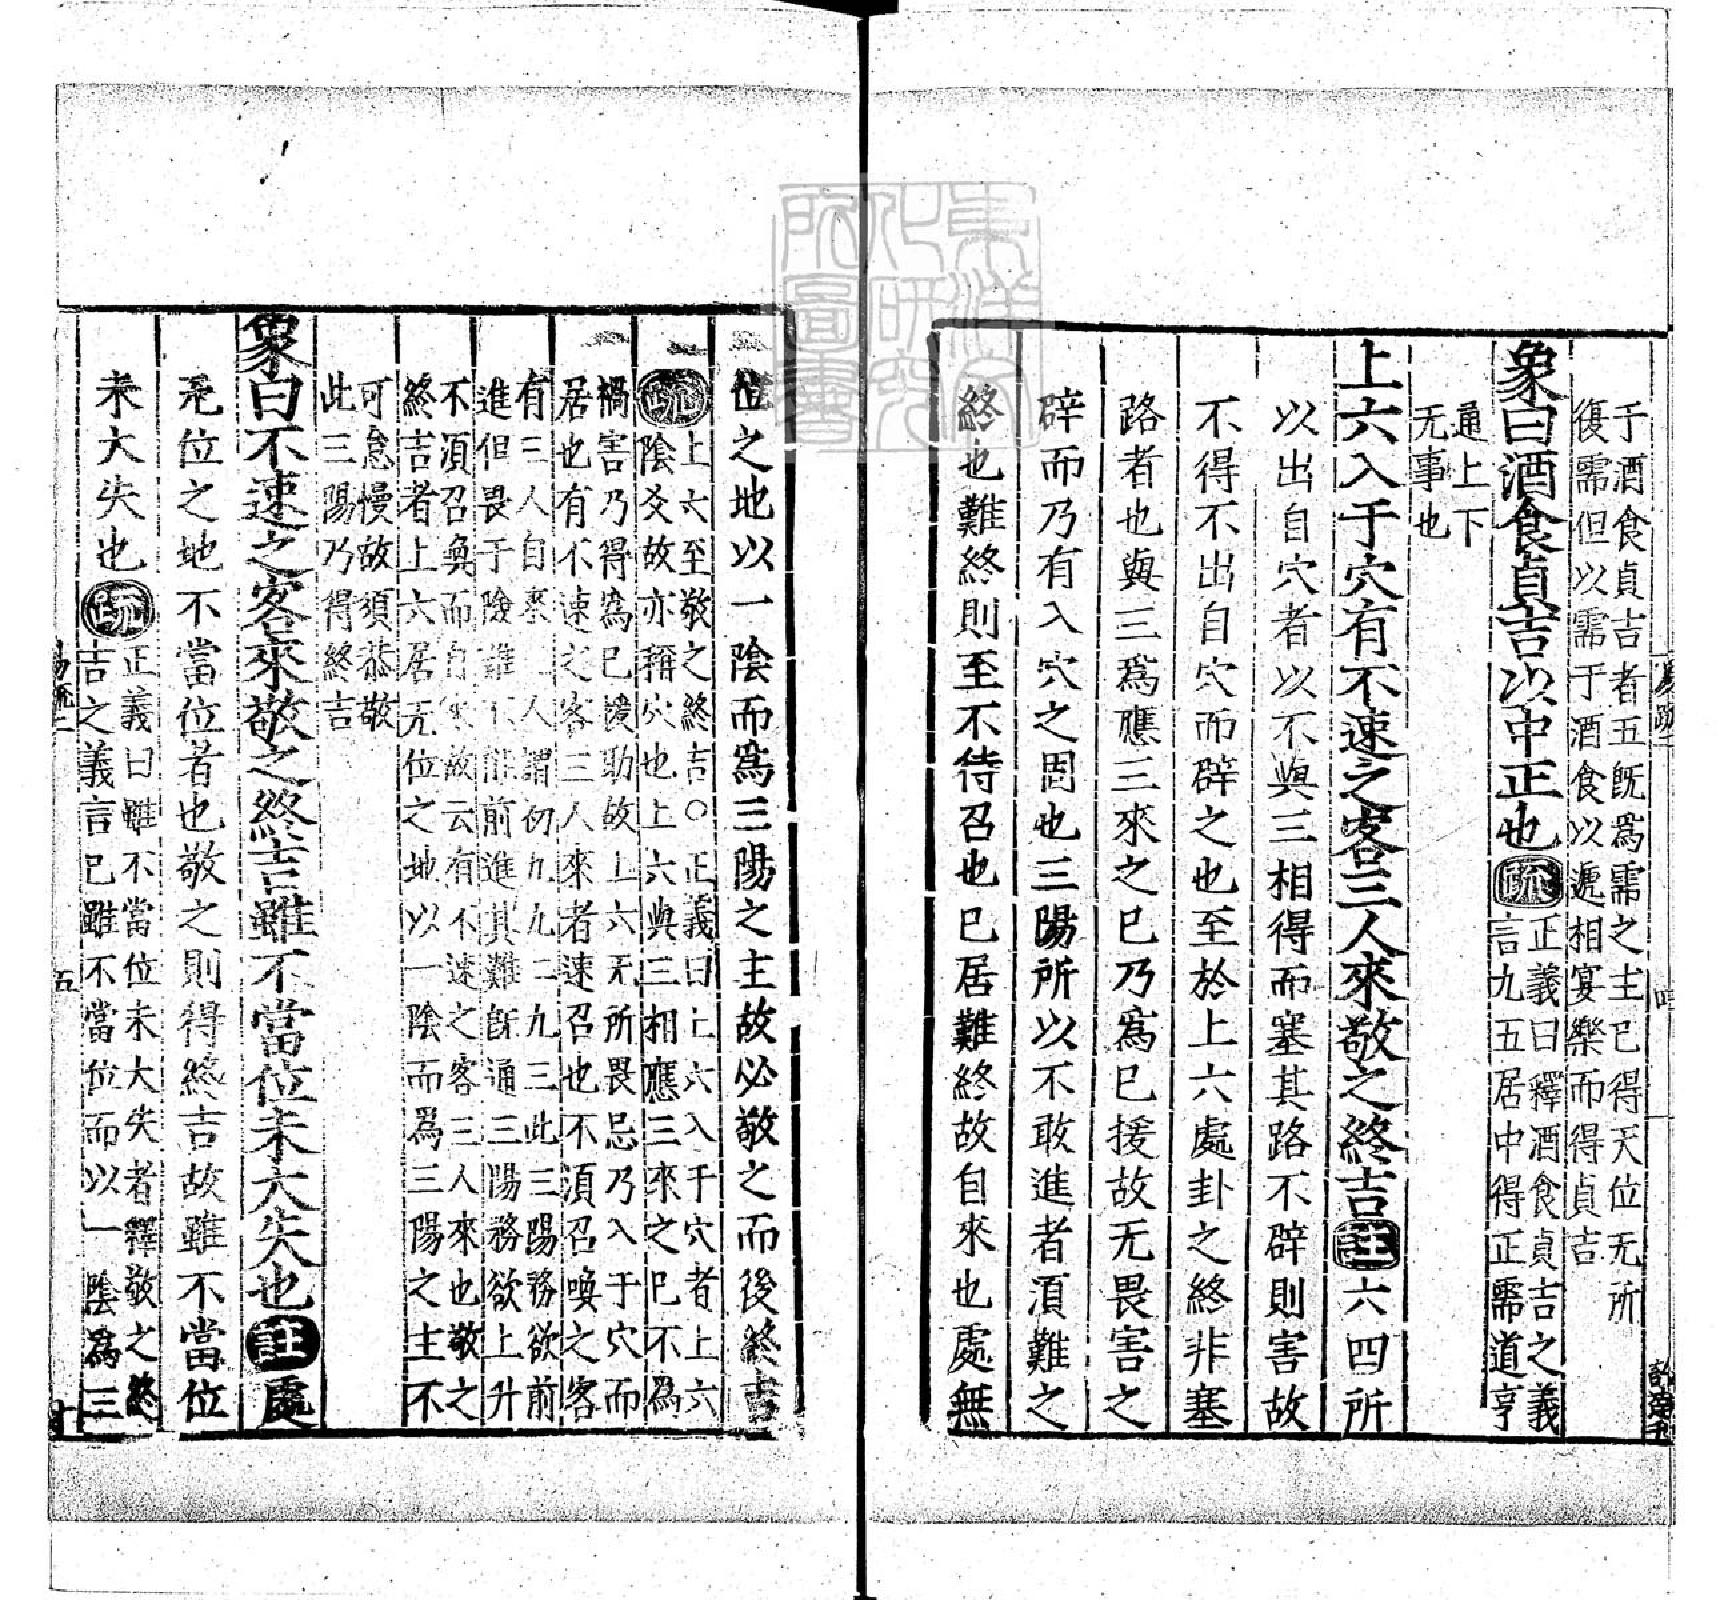 于酒食貞吉者五旣爲需之主已得天位无所
復需但以需于酒食以遞相宴樂而得貞吉
象曰酒食貞吉以中正也疏正義曰釋酒食貞吉之義
言九五居中得正需道亨
通上下
无事也
上六入于穴有不速之客三人來敬之終吉註六四所
以出自穴者以不與三相得而塞其路不辟則害故
不得不出自穴而辟之也至於上六處卦之終非塞
路者也與三爲應三來之已乃爲已援故无畏害之
辟而乃有入穴之固也三陽所以不敢進者須難之
終也難終則至不待召也已居難終故自來也處無
位之地以一陰而爲三陽之主故必敬之而後終吉
疏上六至敬之終吉○正義曰上六入于穴者上六
陰爻故亦稱穴也上六與三相應三來之已不爲
禍害乃得爲已援助故上六无所畏忌乃入于穴而
居也有不速之客三人來者速召也不須召喚之客
有三人自來三人謂初九九二九三此三陽務欲前
進但畏于險難不能前進其難旣通三陽務欲上升
不須召喚而自來故云有不速之客三人來也敬之
終吉者上六居无位之地以一陰而爲三陽之主不
可怠慢故須恭敬
此三陽乃得終吉
象曰不速之客來敬之終吉雖不當位未大失也註處
无位之地不當位者也敬之則得終吉故雖不當位
未大失也疏正義曰雖不當位未大失者釋敬之終
吉之義言已雖不當位而以一陰爲三
易疏二
五